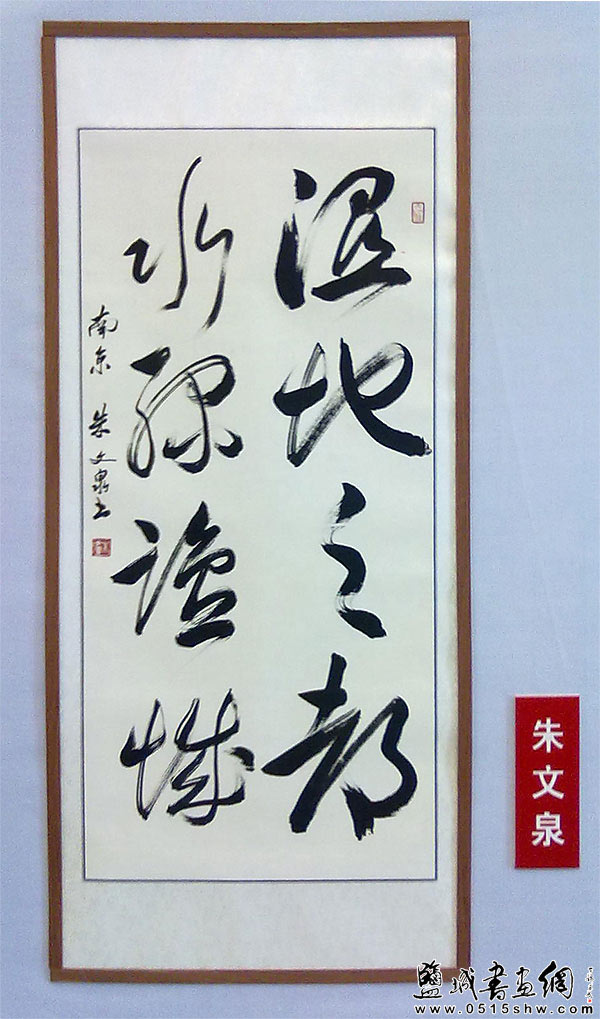 湿地之都
水绿盐城
南京 朱文泉书
朱文泉
鹽城書畫網
www.0515shw.com